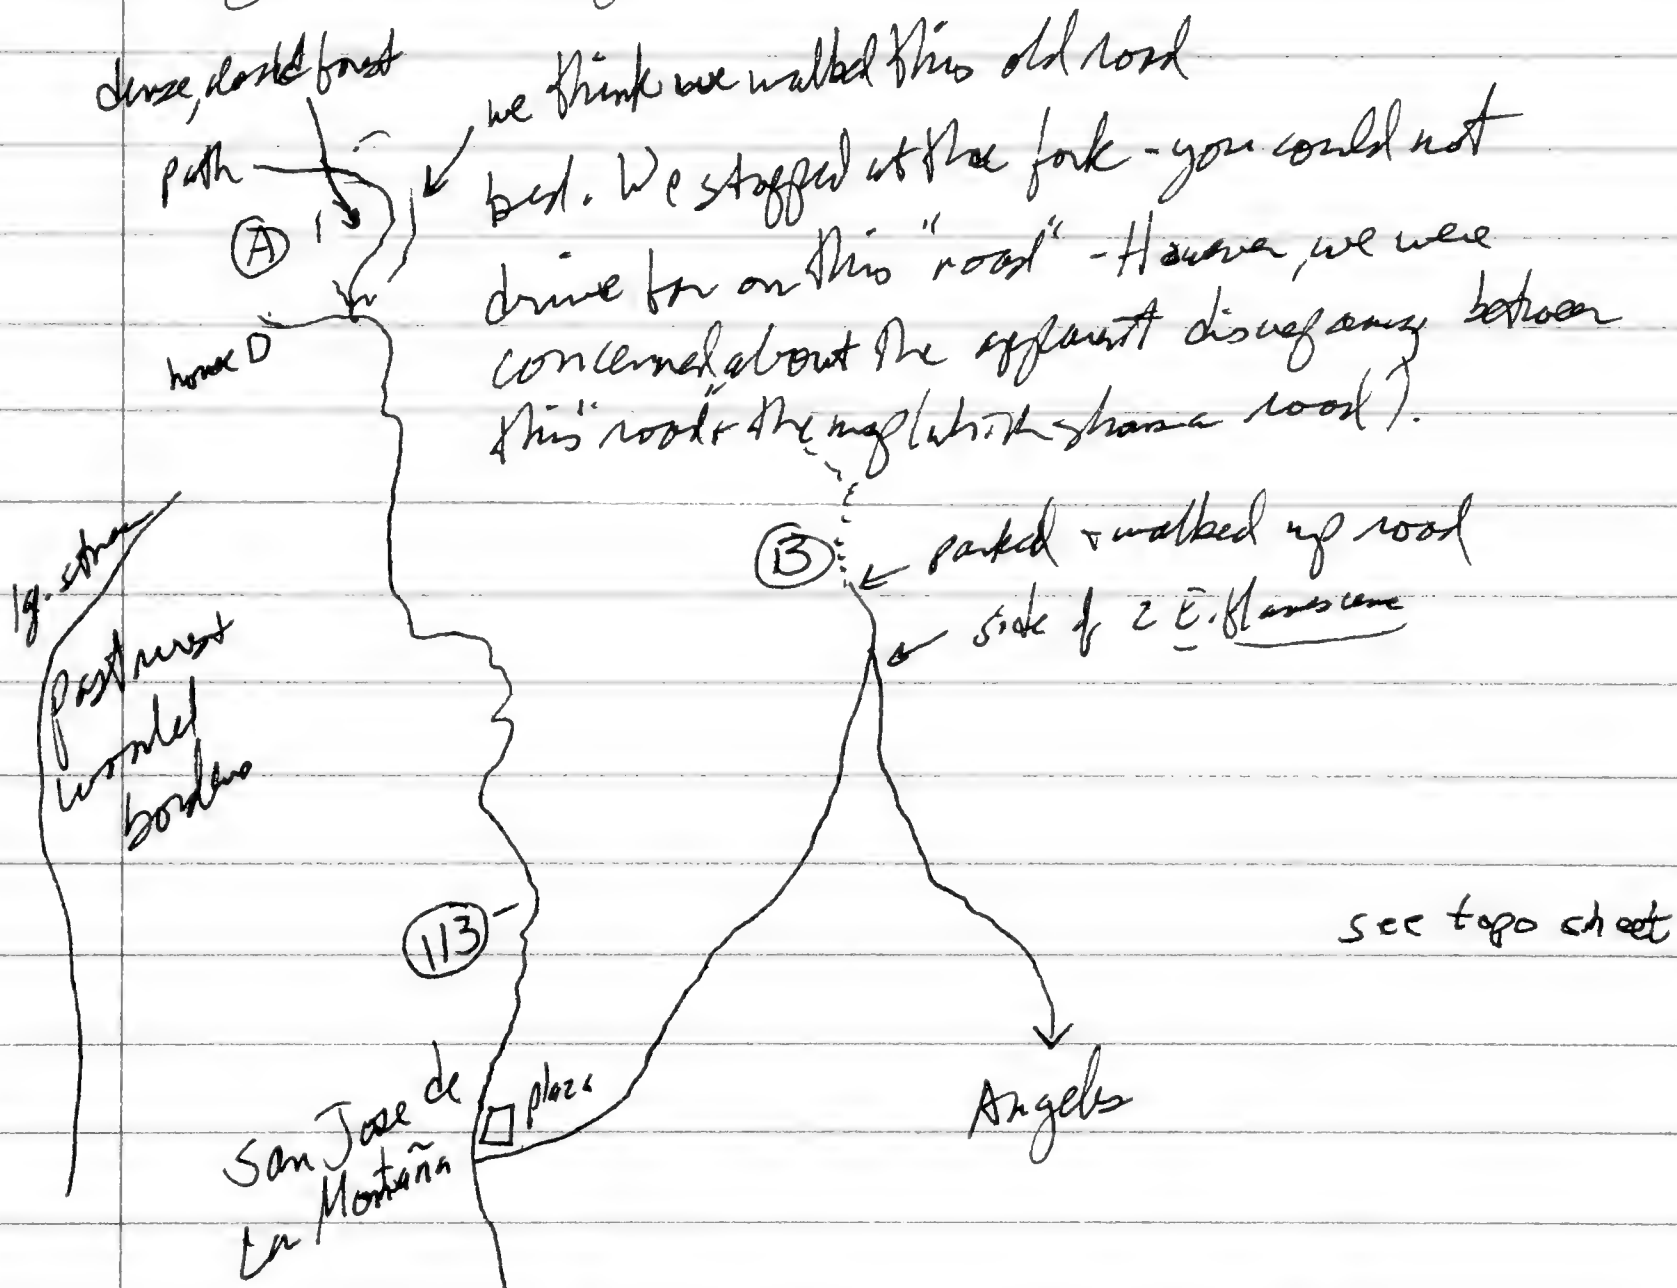 dense, forest
we think we walked this old road
path
bed. We stopped at the fork - you could not
A
drive far on this "road" - However, we were
concerned about the apparent discrepancy between
house
this "road" & the map (which shows a road).
lg. stream
B
parked & walked up road
side of 2 E. flavescens
past west
would
borders
113
see topo sheet
plaza
San Jose de
La Montaña
Angeles